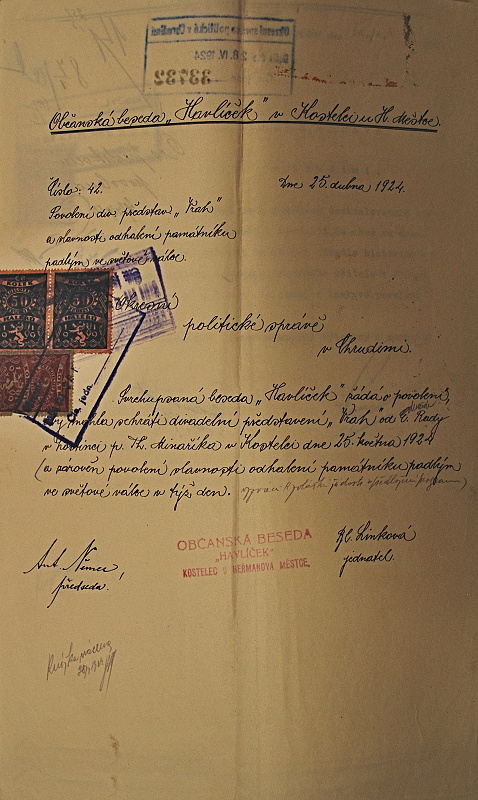 Občanská beseda „Havlíček“ v Kostelci u H. Městce.
Číslo: 42.
Dne 25. dubna 1924.
Povolení div. představ. „Vrah“
a slavnosti odhalení památníku
padlým ve světové válce.
Okresní
politické správě
v Chrudimi.
Svrchupsaná beseda „Havlíček“ žádá o povolení,
by mohla sehráti divadelní představení „Vrah“ od
v hostinci p. Minaříka v Kostelci dne 25. května 1924
(a zároveň povolení slavnosti odhalení památníku padlým
ve světové válce v týž den.
OBČANSKÁ BESEDA
„HAVLÍČEK“
KOSTELEC U HEŘMANOVA MĚSTCE.
Ant. Němec
předseda.
Linková
jednatel.
33732